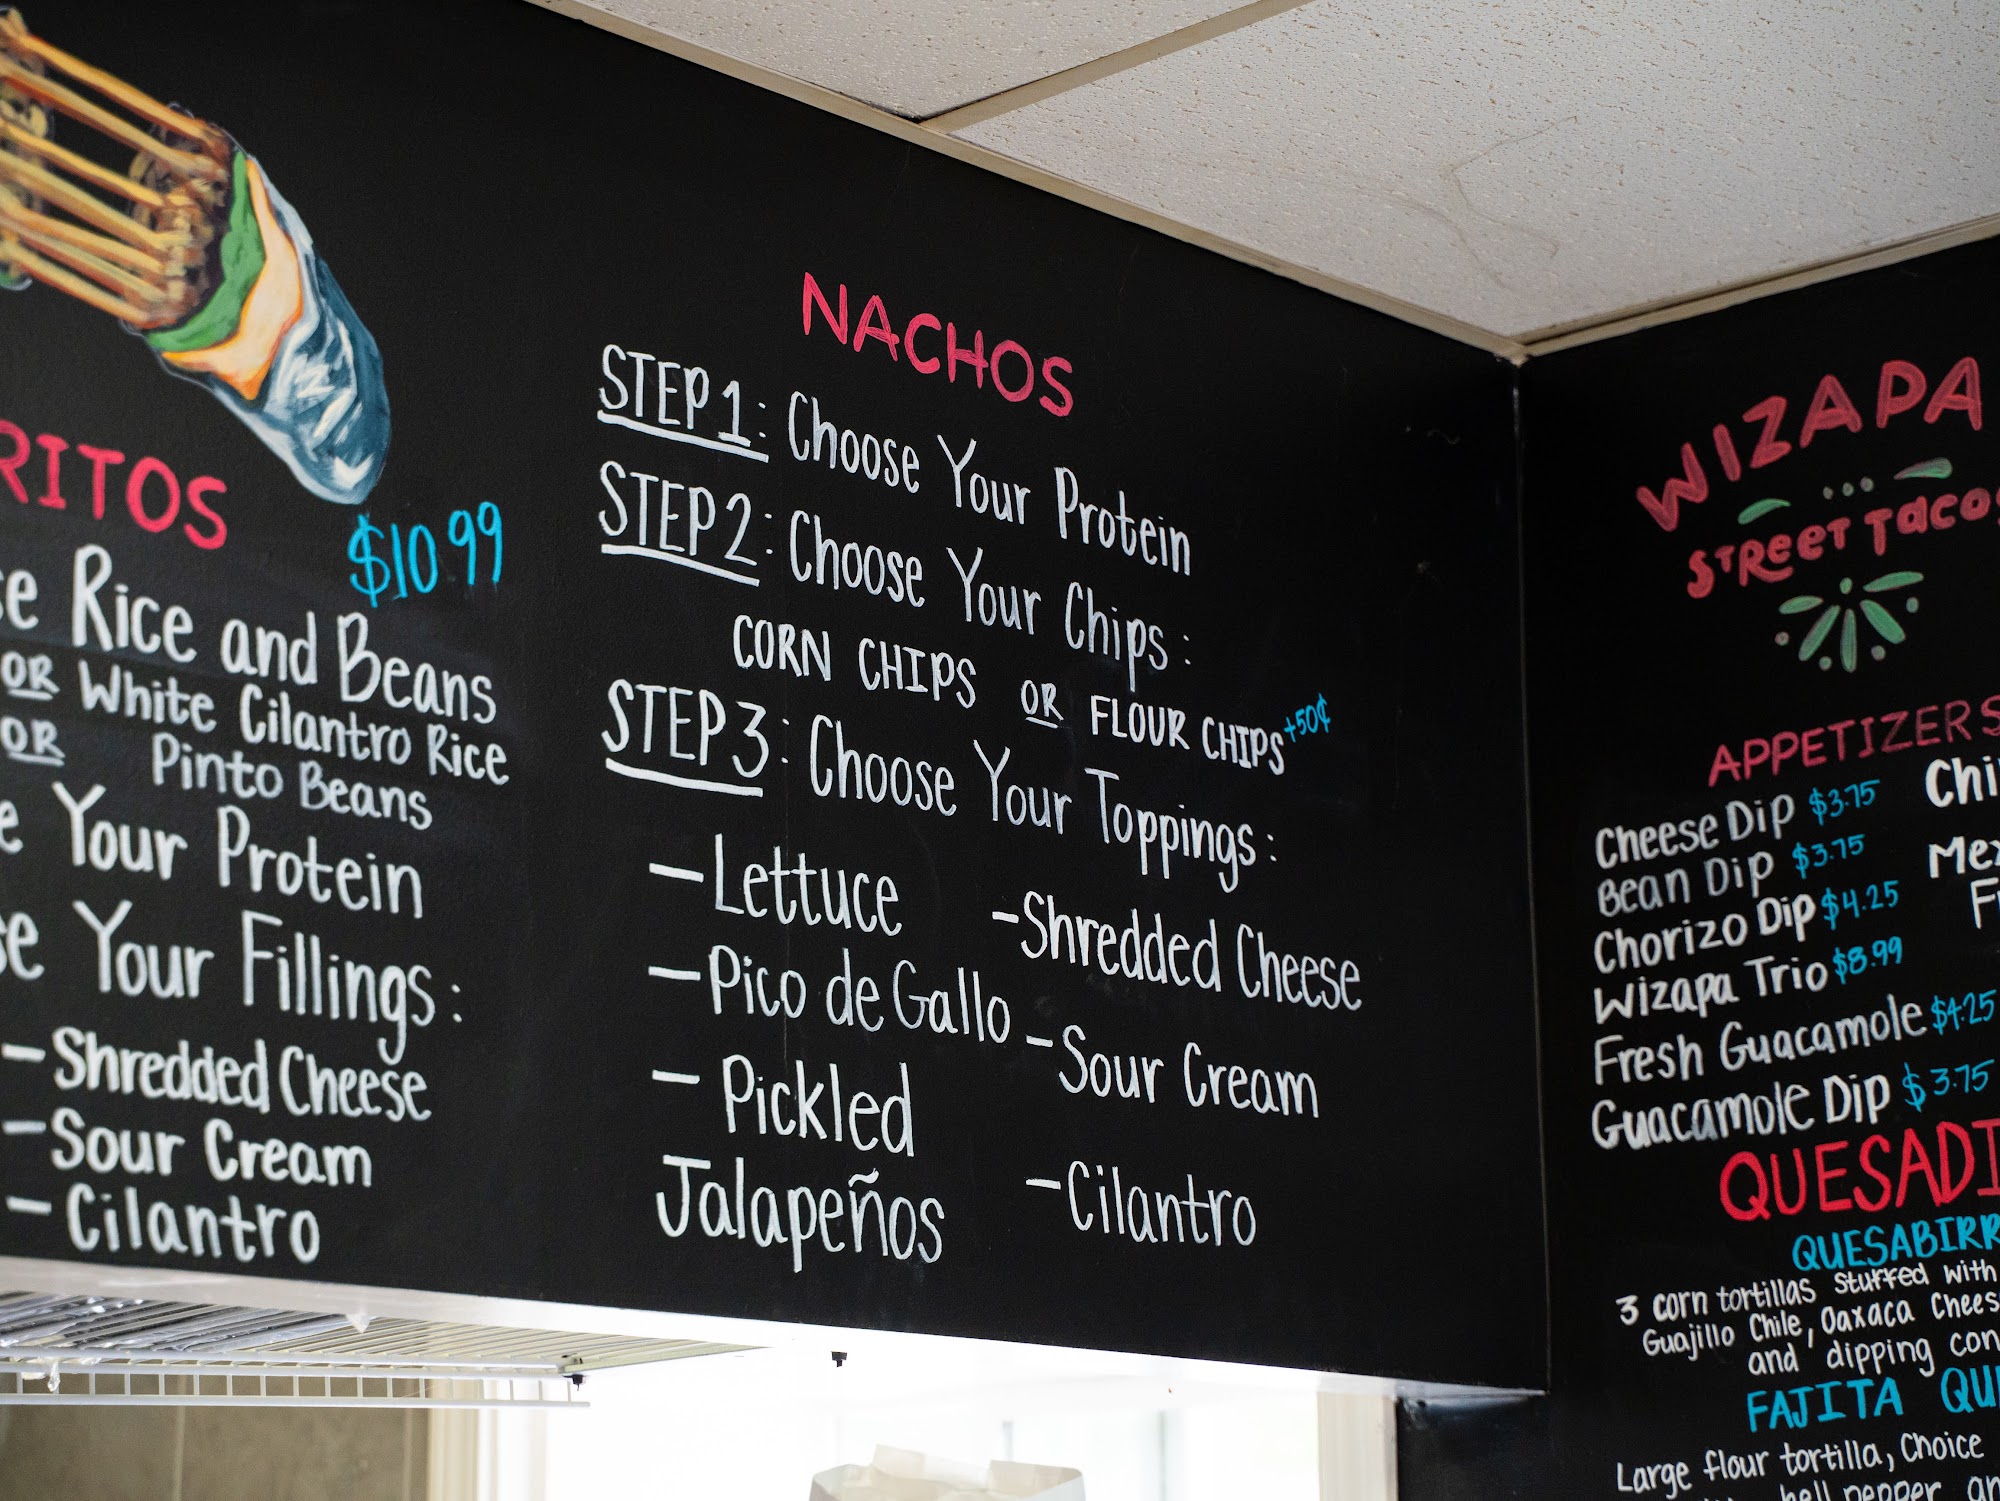 RITOS
$10.99
Rice and Beans
OR White Cilantro Rice
OR Pinto Beans
Your Protein
Your Fillings:
- Shredded Cheese
- Sour Cream
- Cilantro
NACHOS
STEP 1: Choose Your Protein
STEP 2: Choose Your Chips:
CORN CHIPS OR FLOUR CHIPS +50¢
STEP 3: Choose Your Toppings:
- Lettuce
- Pico de Gallo
- Pickled
Jalapeños
- Shredded Cheese
- Sour Cream
- Cilantro
WIZAPA
STREET TACOS
APPETIZERS
Cheese Dip $3.75
Bean Dip $3.75
Chorizo Dip $4.25
Wizapa Trio $8.99
Fresh Guacamole $4.25
Guacamole Dip $3.75
Chi
Mex
QUESADI
QUESABIRR
3 corn tortillas stuffed with
Guajillo Chile, Oaxaca Chees
and dipping con
FAJITA QU
Large flour tortilla, Choice
bell pepper, an